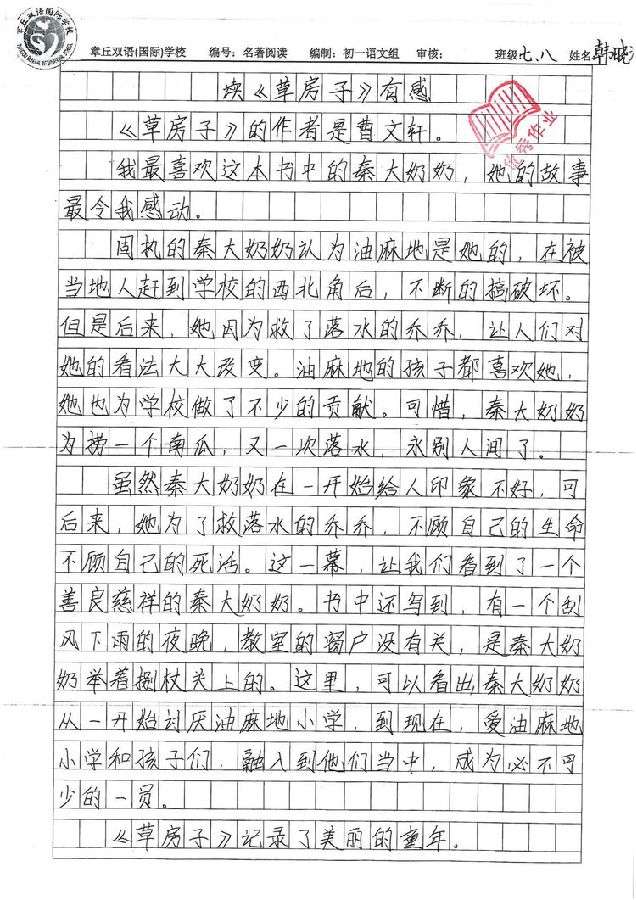 章丘双语国际学校
章丘双语(国际)学校 编号：名著阅读 编制：初一语文组 审核： 班级七.八 姓名韩晓
读《草房子》有感
优秀作业
《草房子》的作者是曹文轩。
我最喜欢这本书中的秦大奶奶，她的故事
最令我感动。
固执的秦大奶奶认为油麻地是她的，在被
当地人赶到学校的西北角后，不断的搞破坏。
但是后来，她因为救了落水的乔乔，让人们对
她的看法大大改变。油麻地的孩子都喜欢她，
她也为学校做了不少的贡献。可惜，秦大奶奶
为捞一个南瓜，又一次落水，永别人间了。
虽然秦大奶奶在一开始给人印象不好，可
后来，她为了救落水的乔乔，不顾自己的生命
不顾自己的死活。这一幕，让我们看到了一个
善良慈祥的秦大奶奶。书中还写到，有一个刮
风下雨的夜晚，教室的窗户没有关，是秦大奶
奶举着拐杖关上的。这里，可以看出秦大奶奶
从一开始讨厌油麻地小学，到现在，爱油麻地
小学和孩子们，融入到他们当中，成为必不可
少的一员。
《草房子》记录了美丽的童年。